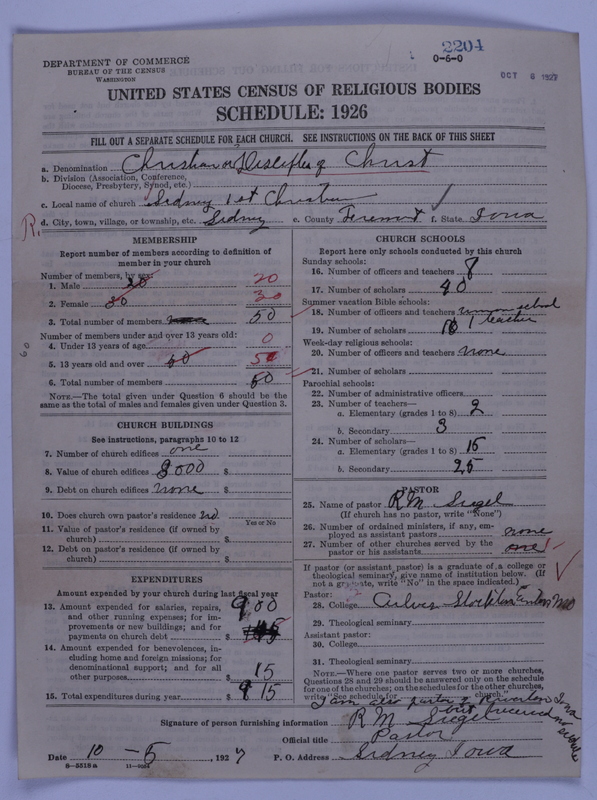 2204
DEPARTMENT OF COMMERCE
BUREAU OF THE CENSUS
WASHINGTON
0-6-0
OCT 8 1927
UNITED STATES CENSUS OF RELIGIOUS BODIES
SCHEDULE: 1926
FILL OUT A SEPARATE SCHEDULE FOR EACH CHURCH. SEE INSTRUCTIONS ON THE BACK OF THIS SHEET
a. Denomination Christian or Disciples of Christ
b. Division (Association, Conference,
Diocese, Presbytery, Synod, etc.)
c. Local name of church Sidney 1st Christian
R. d. City, town, village, or township, etc. Sidney e. County Fremont f. State Iowa
MEMBERSHIP
Report number of members according to definition of
member in your church
Number of members, by sex:
1. Male 20 20
2. Female 30 30
3. Total number of members 50
Number of members under and over 13 years old:
4. Under 13 years of age 0
60
5. 13 years old and over 50 50
6. Total number of members 50
NOTE.—The total given under Question 6 should be the
same as the total of males and females given under Question 3.
CHURCH BUILDINGS
See instructions, paragraphs 10 to 12
7. Number of church edifices one
8. Value of church edifices 8000 $
9. Debt on church edifices none $
10. Does church own pastor's residence no
Yes or No
11. Value of pastor's residence (if owned by
church) $
12. Debt on pastor's residence (if owned by
church) $
EXPENDITURES
Amount expended by your church during last fiscal year
13. Amount expended for salaries, repairs,
and other running expenses; for im-
provements or new buildings; and for
payments on church debt $ 900
14. Amount expended for benevolences, in-
cluding home and foreign missions; for
denominational support; and for all
other purposes $ 15
15. Total expenditures during year $ 915
CHURCH SCHOOLS
Report here only schools conducted by this church
Sunday schools:
16. Number of officers and teachers 8
17. Number of scholars 40
Summer vacation Bible schools:
18. Number of officers and teachers union school
19. Number of scholars 1 teacher
Week-day religious schools:
20. Number of officers and teachers none
21. Number of scholars
Parochial schools:
22. Number of administrative officers
23. Number of teachers—
a. Elementary (grades 1 to 8) 2
b. Secondary 3
24. Number of scholars—
a. Elementary (grades 1 to 8) 15
b. Secondary 25
PASTOR
25. Name of pastor R M Siegel
(If church has no pastor, write "None")
26. Number of ordained ministers, if any, em-
ployed as assistant pastors none
27. Number of other churches served by the
pastor or his assistants one 1
If pastor (or assistant pastor) is a graduate of a college or
theological seminary, give name of institution below. (If
not a graduate, write "No" in the space indicated.)
Pastor:
28. College Culver Stockton Canton Mo
29. Theological seminary
Assistant pastor:
30. College
31. Theological seminary
NOTE.—Where one pastor serves two or more churches,
Questions 28 and 29 should be answered only on the schedule
for one of the churches; on the schedules for the other churches,
write "See schedule for church."
I am also pastor of Riverton Iowa
but received no schedule
Signature of person furnishing information R M Siegel
Official title Pastor
Date 10 - 5, 1927 P. O. Address Sidney Iowa
8-5318a